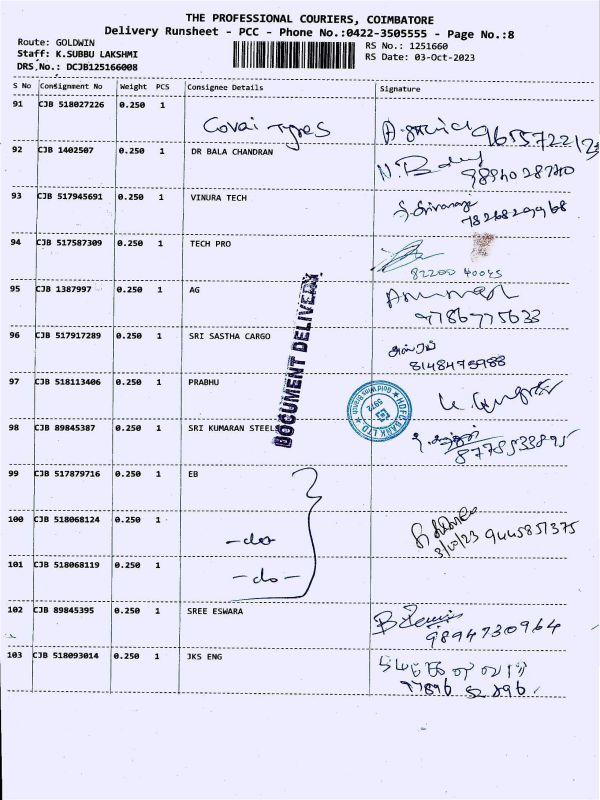 THE PROFESSIONAL COURIERS, COIMBATORE
Delivery Runsheet - PCC - Phone No.:0422-3505555 - Page No.:8
Route: GOLDWIN
RS No.: 1251660
Staff: K.SUBBU LAKSHMI
RS Date: 03-Oct-2023
DRS.No.: DCJB125166008
S No Consignment No Weight PCS Consignee Details Signature
91 CJB 518027226 0.250 1 Covai Tyres
92 CJB 1402507 0.250 1 DR BALA CHANDRAN
93 CJB 517945691 0.250 1 VINURA TECH
94 CJB 517587309 0.250 1 TECH PRO
82200 40045
95 CJB 1387997 0.250 1 AG
9786775633
96 CJB 517917289 0.250 1 SRI SASTHA CARGO
8148475988
97 CJB 518113406 0.250 1 PRABHU
98 CJB 89845387 0.250 1 SRI KUMARAN STEELS
99 CJB 517879716 0.250 1 EB
100 CJB 518068124 0.250 1 -do-
3/10/23 9445851375
101 CJB 518068119 0.250 1 -do-
102 CJB 89845395 0.250 1 SREE ESWARA
9894730964
103 CJB 518093014 0.250 1 JKS ENG
DOCUMENT DELIVERY
HDFC BANK LTD
5972